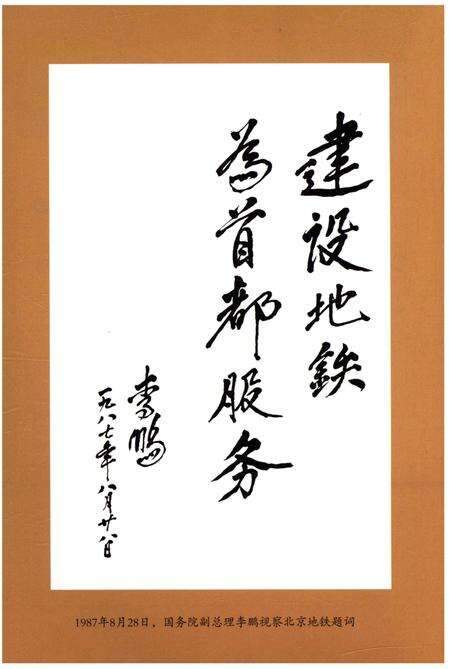 建设地鉄
为首都服务
李鹏
一九八七年八月廿八日
1987年8月28日，国务院副总理李鹏视察北京地铁题词